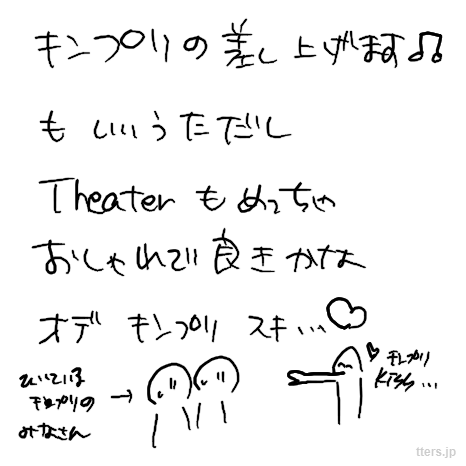 キンプリの差し上げます♫
も いいうただし
Theater もめっちゃ
おしゃれで良きかな
オデ キンプリ スキ…♡
ひいている
キンプリの
みなさん
→
♡キンプリ
Kiss...
tters.jp